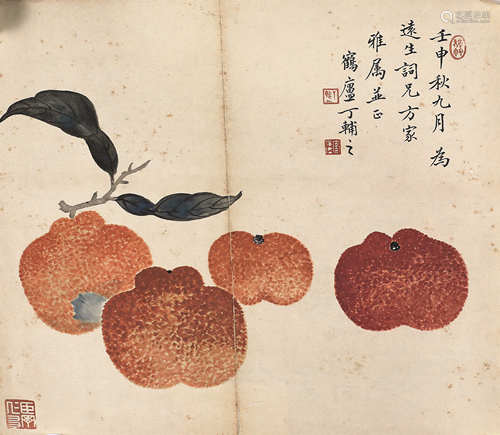 壬申秋九月為
遠生詞兄方家
雅属並正
鶴廬丁輔之